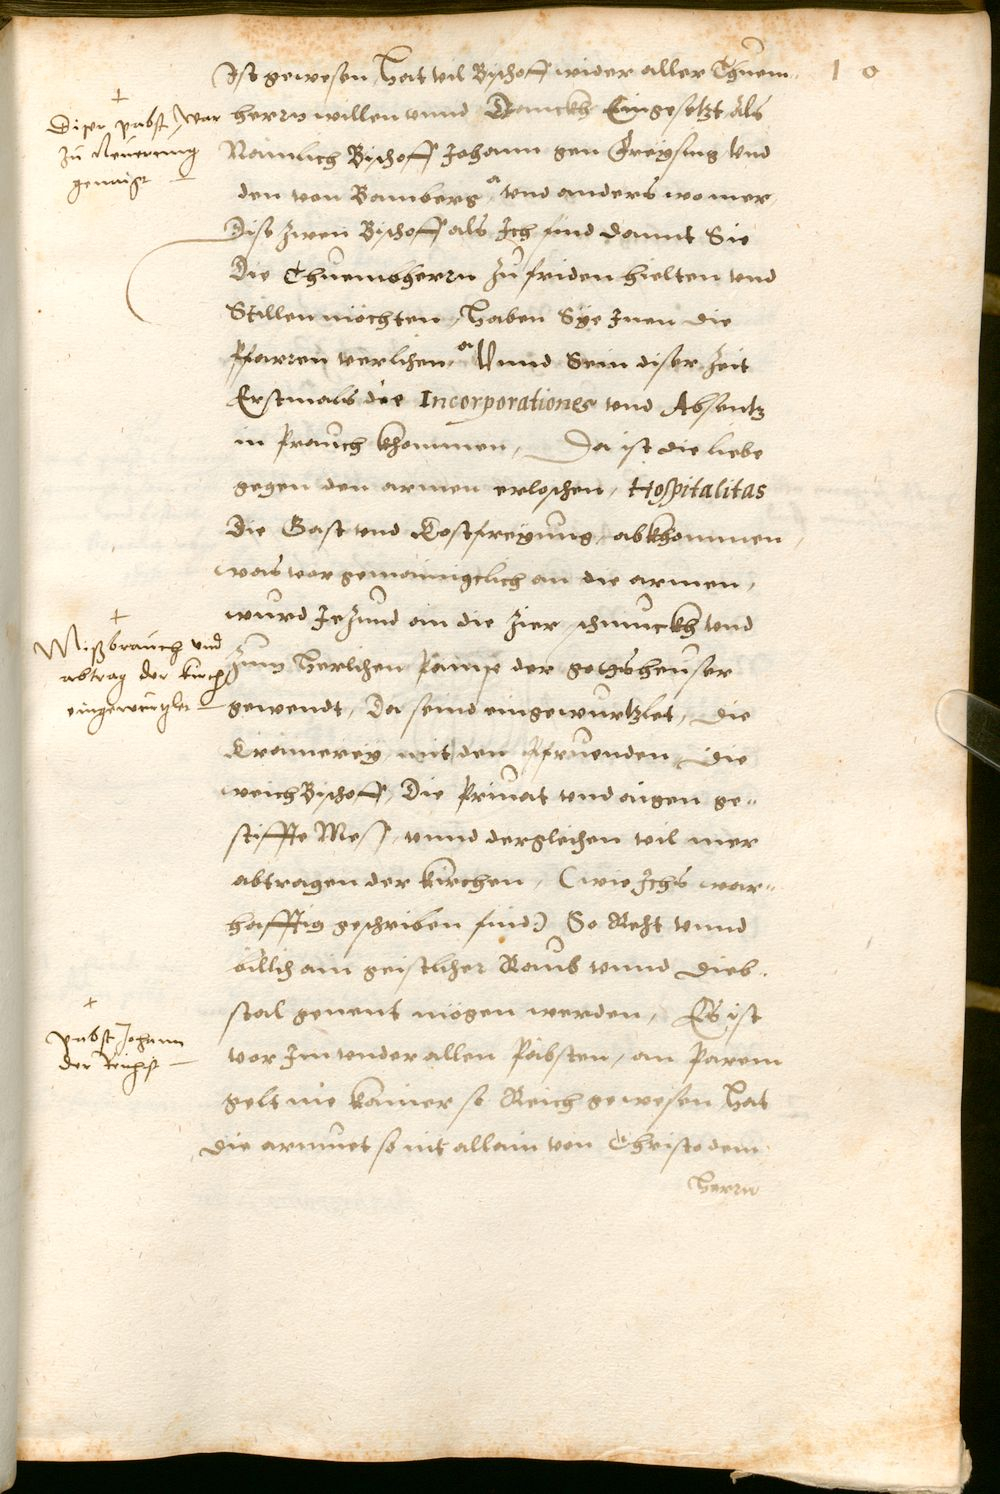 10
Ist gewesen, Hat vil Bischoff wider aller Thuem
herrn willen vnnd Danckh Eingesetzt, Als
Namlich Bischoff Johann gen Freysing vnd
den von Bamberg, vnd anders wo mer,
Dise zwen Bischoff als Ich find damit Sie
Die Thuembherrn zu friden hielten vnd
Stillen möchten, Haben Sye Inen die
Pfarren verlihen, Vnnd Sein diser Zeit
Erstmals die Incorporationes vnd Absentz
in Prauch khommen, Da ist die liebe
gegen den armen erloschen, Hospitalitas
Die Gast vnd Costfreyung, abkhommen,
was vor gemainigclich an die armen,
wurd Jezund an die Zier, schmuckh vnd
zum Herlichen Pamp der gotsheuser
gewendt, Da seind eingewurtzlet, Die
Cramerey, mit den Pfruenden, Die
weich Bischoff, Die Priuat vnd aigen ge-
stiffte Mess, vnnd dergleichen vil mer
abtragen der kirchen, (wie Ichs war-
hafftig geschriben find) So Recht vnnd
billich ain geistlicher Raub vnnd Dieb-
stal genent mögen werden, Es ist
vor Im vnder allen Päbsten, an Parem
gelt nie kainer so Reich gewesen, Hat
die armuet so nit allain von Christo dem
Herrn
Diser pabst war
zu Neuerung
genaigt
Mißbrauch vnd
abtrag der kirch
eingewurtzlet
pabst Johann
der Reichist